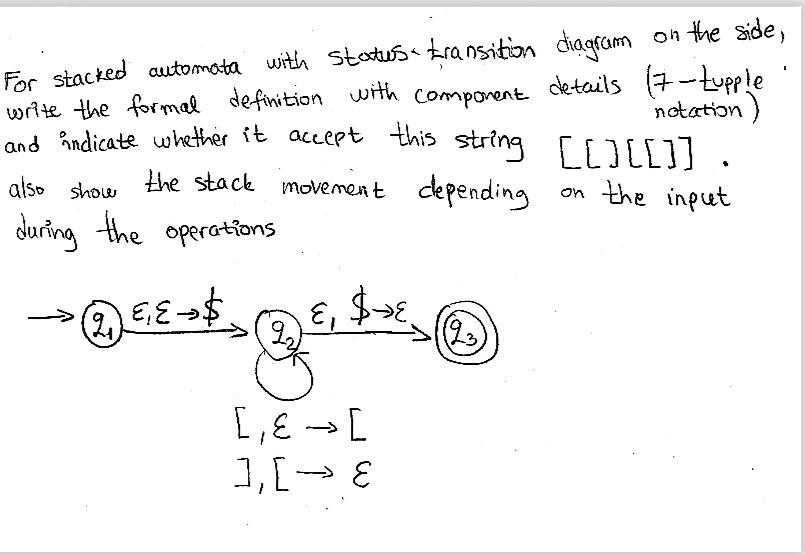 For stacked automata with status-transition diagram on the side,
write the formal definition with component details (7-tupple
notation)
and indicate whether it accept this string [[][[]] .
also show the stack movement depending on the input
during the operations
q₁ ε,ε→$ q₂ ε, $→ε q₃
[,ε → [
],[ → ε